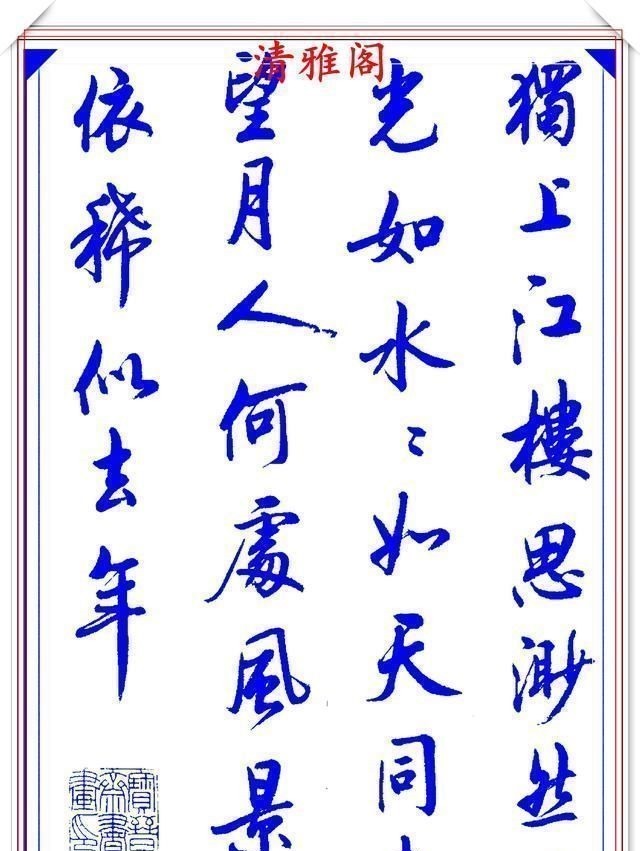 清雅阁
獨上江樓思渺然
光如水ミ如天同
望月人何處風景
依稀似去年